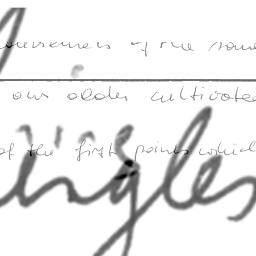 of the same
our older cultivated
of the first points which
ingles